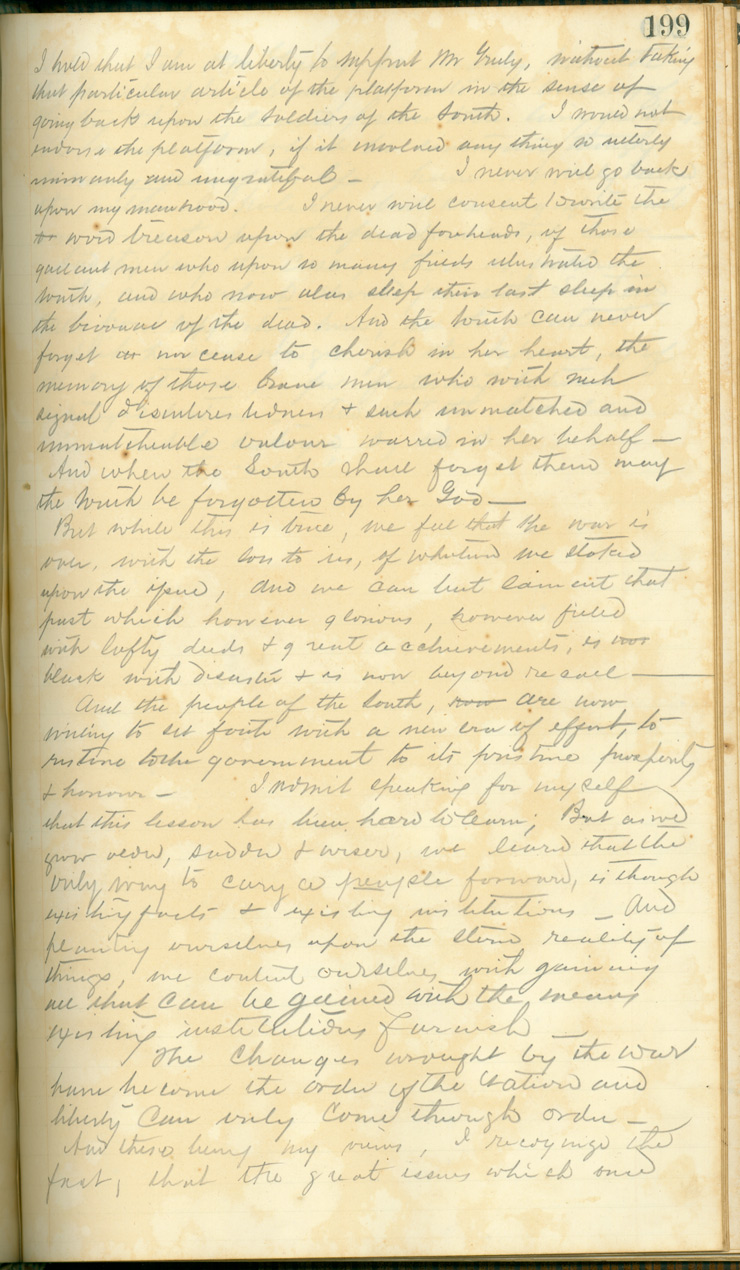 199
I hold that I am at liberty to support Mr Greely, without taking
that particular article of the platform in the sense of
going back upon the soldiers of the South. I would not
endorse the platform, if it involved any thing so utterly
unmanly and ungrateful — I never will go back
upon my manhood. I never will consent to write the
word treason upon the dead foreheads, of those
gallant men who upon so many fields illustrated the
South, and who now alas sleep their last sleep in
the bivouac of the dead. And the South can never
forget or nor cease to cherish in her heart, the
memory of those brave men who with such
signal disinterestedness & such unmatched and
unmatchable valour warred in her behalf —
And when the South shall forget them may
the South be forgotten by her God —
But while this is true, we feel that the war is
over, with the loss to us, of whatever we staked
upon the issue, and we can but lament that
past which however glorious, however filled
with lofty deeds & great acchievements, is
black with disaster & is now beyond recall —
And the people of the South, now are now
willing to set forth with a new era of effort, to
restore the government to its pristine prosperity
& honour — I admit speaking for myself
that this lesson has been hard to learn; But as we
grow older, sadder & wiser, we learn that the
only way to cary a people forward, is though
existing facts & existing institutions — And
planting ourselves upon the stern reality of
things, we content ourselves with gaining
all that can be gained with the means
existing institutions furnish —
The changes wrought by the war
have become the order of the Nation and
liberty can only come through order —
And these being my views, I recognize the
fact, that the great issues which once